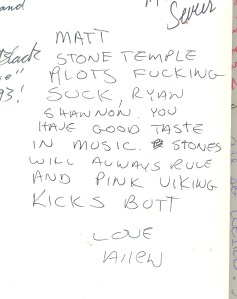 and
Sever
Black
o"
93!
MATT
STONE TEMPLE
PILOTS FUCKING
SUCK, RYAN
SHAWNON. YOU
HAVE GOOD TASTE
IN MUSIC. STONES
WILL ALWAYS RULE
AND PINK VIKING
KICKS BUTT
LOVE
Allen